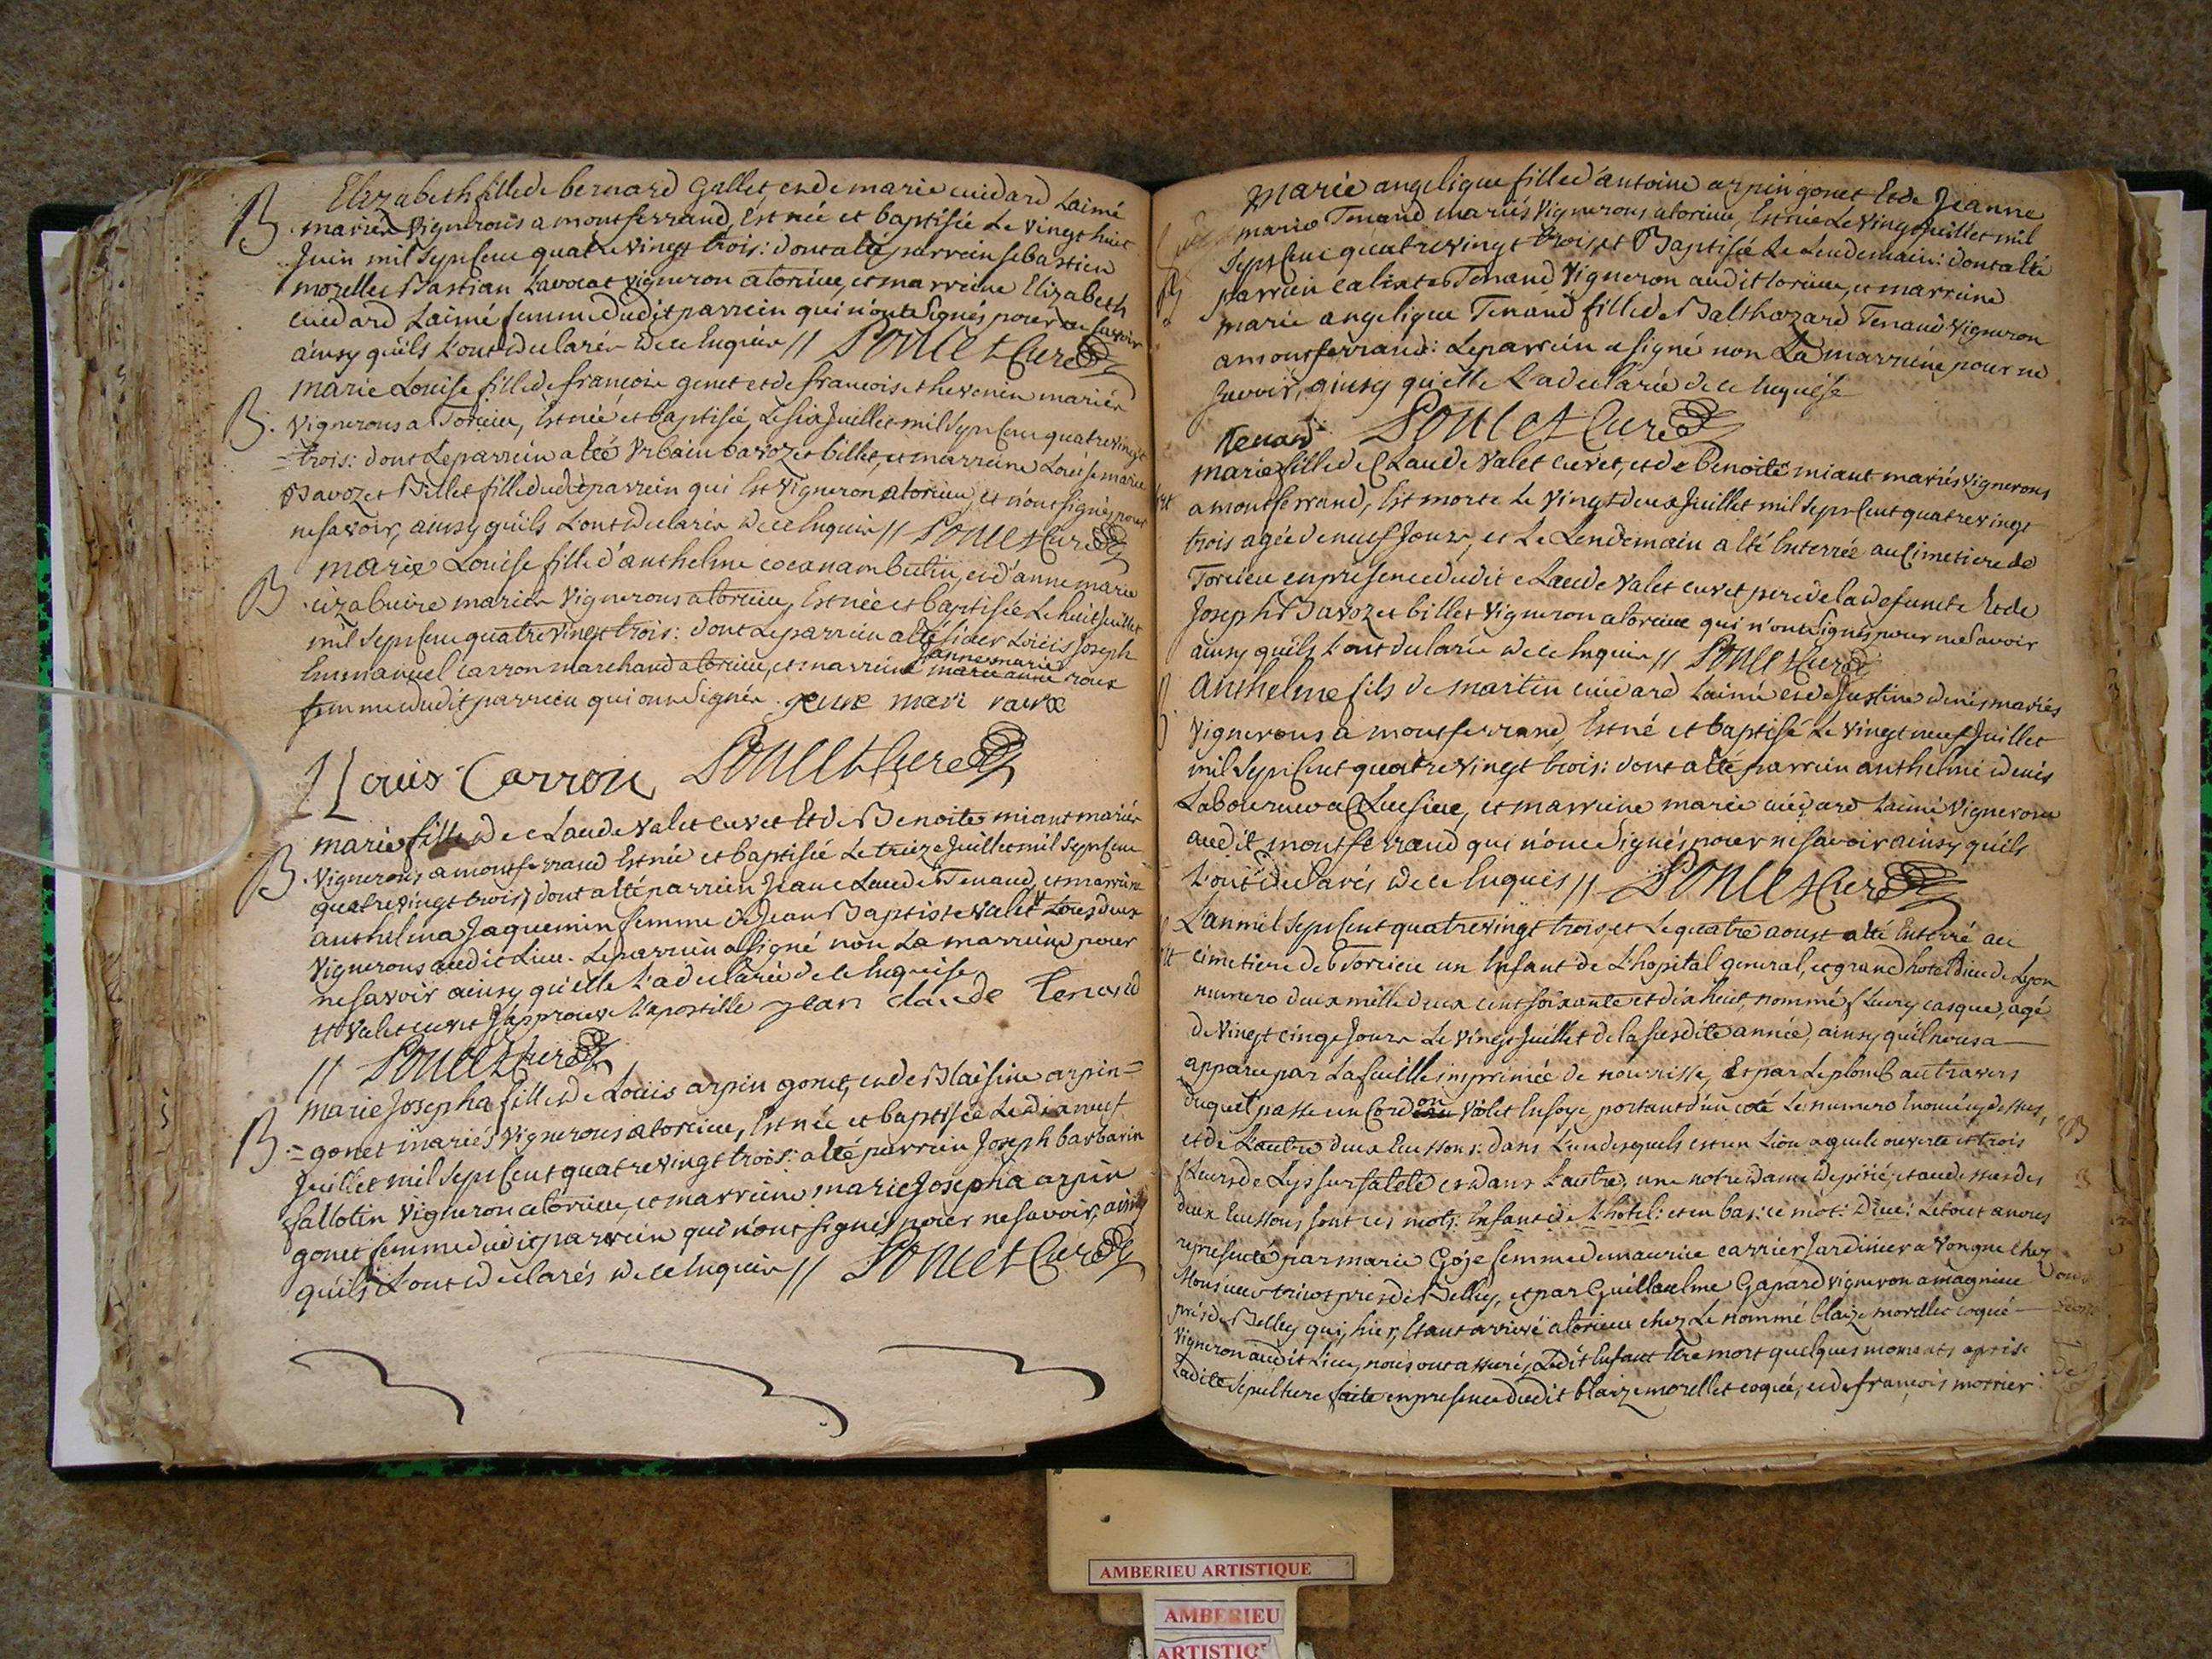 B.
Elizabeth fille de bernard Gallet et de marie cuidard Laimé
mariés Vignerons a montferrand, Est née et baptisée Le vingt huit
Juin mil sept Cent quatre vingt trois: dont a Eté parrein sebastien
morellet Bastian Lavocat vigneron a torcieu, et marreine Elizabeth
cuidard Laimé femme dudit parrein qui n'ont Signés pour ne savoir
ainsy qu'ils L'ont déclarés de ce Enquis // Poncet Curé
B.
marie Louise fille de francois genet et de francoise thevenin mariés
Vignerons a Torcieu, Est née et baptisée, Le six Juillet mil Sept Cent quatre vingt
=trois: dont Le parrein a Eté Vrbain bavozet billet, et marreine Louise marie
Bavozet Billet fille dudit parrein qui Est vigneron a torcieu, et n'ont signés pour
ne savoir, ainsy qu'ils L'ont declarés de ce Enquis // Poncet Curé
B
marie Louise fille d'anthelme cocanambutin, et d'anne marie
cizabuire mariés Vignerons a torcieu, Est née et baptisée Le huit Juillet
mil Sept Cent quatre vingt trois: dont Le parrein a Eté sieur Loüis Joseph
Emmanuel Carron marchand a torcieu, et marreine Jannemarie roux
femme dudit parrein qui ont Signés. jeane mari raux
Louis Carron Poncet Curé
B.
marie fille de Claude Valet cuvet Et de Benoite miant mariés
Vignerons a montferrand Est née et baptisée Le treize Juillet mil Sept Cent
quatre vingt trois, dont a Eté parrein Jean Claude Tenand, et marreine
anthelma Jaquemin femme de Jean Baptiste Valet tt tous deux
Vignerons audit Lieu. Le parrein a signé non La marreine pour
ne savoir ainsy qu'elle L'a declarée de ce Enquise
tt Valet cuvet J'approuve L'apostille jean claude tenand
// Poncet Curé
B.
marie Josepha fille de Loüis arpin gonet, et de Blaisine arpin=
=gonet mariés Vignerons a torcieu, Est née et baptisée Le dix neuf
Juillet mil Sept Cent quatre vingt trois: a Eté parrein Joseph barbarin
fallotin Vigneron a torcieu, et marreine marie Josepha arpin
gonet femme dudit parrein qui n'ont signés pour ne savoir, ainsy
qu'ils L'ont declarés de ce Enquis // Poncet Curé
Marie angelique fille d'antoine arpin gonet Et de Jeanne
marie Tenand mariés Vignerons a torcieu, Est née Le Vingt Juillet mil
Sept Cent quatre vingt trois, et Baptisée Le Lendemain: dont a Eté
parrein calixte Tenand Vigneron audit torcieu, et marreine
marie angelique Tenand fille de Balthazard Tenand Vigneron
a montferrand: Le parrein a signé non La marreine pour ne
Savoir, ainsy qu'elle L'a declarée de ce Enquise
tenand Poncet Curé
marie fille de Claude Valet cuvet, et de benoite miant mariés Vignerons
a montferrand, Est morte Le Vingt deux Juillet mil Sept Cent quatre vingt
trois agée de neuf Jours, et Le Lendemain a Eté Enterrée au Cimetiere de
Torcieu en presence dudit Claude Valet cuvet pere de la defuncte Et de
Joseph Bavozet billet Vigneron a torcieu qui n'ont Signés pour ne Savoir
ainsy qu'ils L'ont declarés de ce Enquis // Poncet Curé
Anthelme fils de martin cuidard Laimé et de Justine denis mariés
Vignerons a montferrand, Est né et baptisé Le Vingt neuf Juillet
mil Sept Cent quatre vingt trois: dont a Eté parrein anthelme denis
Laboureur a Cluisieu, et marreine marie cuidard Laimé Vigneronne
audit montferrand qui n'ont Signés pour ne savoir ainsy qu'ils
L'ont declarés de ce Enquis // Poncet Curé
L'an mil Sept Cent quatre vingt trois, et Le quatre aoust a Eté Enterré au
Cimetiere de Torcieu un Enfant de L'hopital general, et grand hotel Dieu de Lyon
numero deux mille deux cent soixante et dix huit, nommé fleury casque, agé
de Vingt cinq Jours Le Vingt Juillet de la susdite année, ainsy qu'il nous a
apparu par La feuille imprimée de nourrisse, Et par Le plomb au travers
duquel passe un Cordon Violet En soye, portant d'un coté Le numero Enoncé cy dessus,
et de L'autre deux Ecussons: dans L'un desquels est un Lion a gueule ouverte et trois
fleurs de Lys sur sa tete et dans L'autre, une notre Dame de pitié, et au dessus des
deux Ecussons sont ces mots: Enfant de L'hotel: et en bas: ce mot: Dieu: Le tout a nous
representé par marie Goje femme de maurice carrier Jardinier a Vongne chez
Monsieur tricot près de Belley, et par Guillaulme Gapard vigneron a magnieu
près de Belley qui, hier, Etant arrivé a torcieu chez Le nommé blaize morellet coqué
Vigneron audit Lieu, nous ont assuré, Ledit Enfant Etre mort quelques moments après:
Ladite Sepulture faite en presence dudit blaize morellet coqué, et de francois mossier
AMBERIEU ARTISTIQUE
AMBERIEU
ARTISTIQ